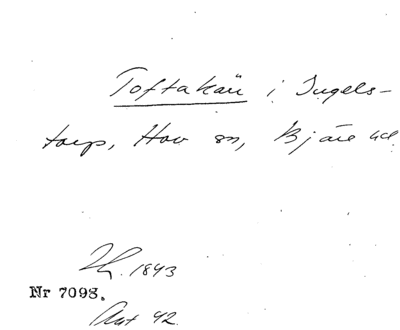 Toftakärr i Ingels-
torp, Hov sn, Bjäre hd.
1843
Nr 7098.
42.